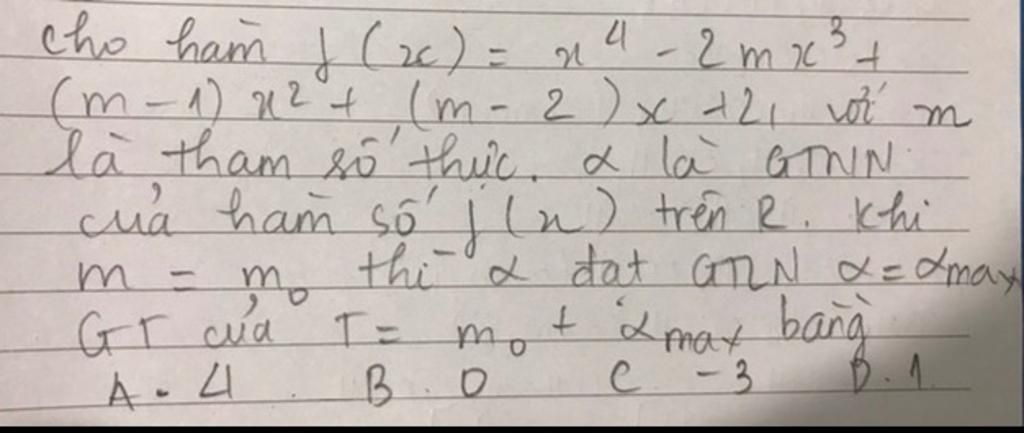 cho hàm f(x) = x⁴ - 2mx³ +
(m-1)x² + (m-2)x +2, với m
là tham số thực. α là GTNN
của hàm số f(x) trên R. Khi
m = m₀ thì α đạt GTLN α = αmax
GT của T = m₀ + αmax bằng
A. 4 B. 0 C -3 D. 1